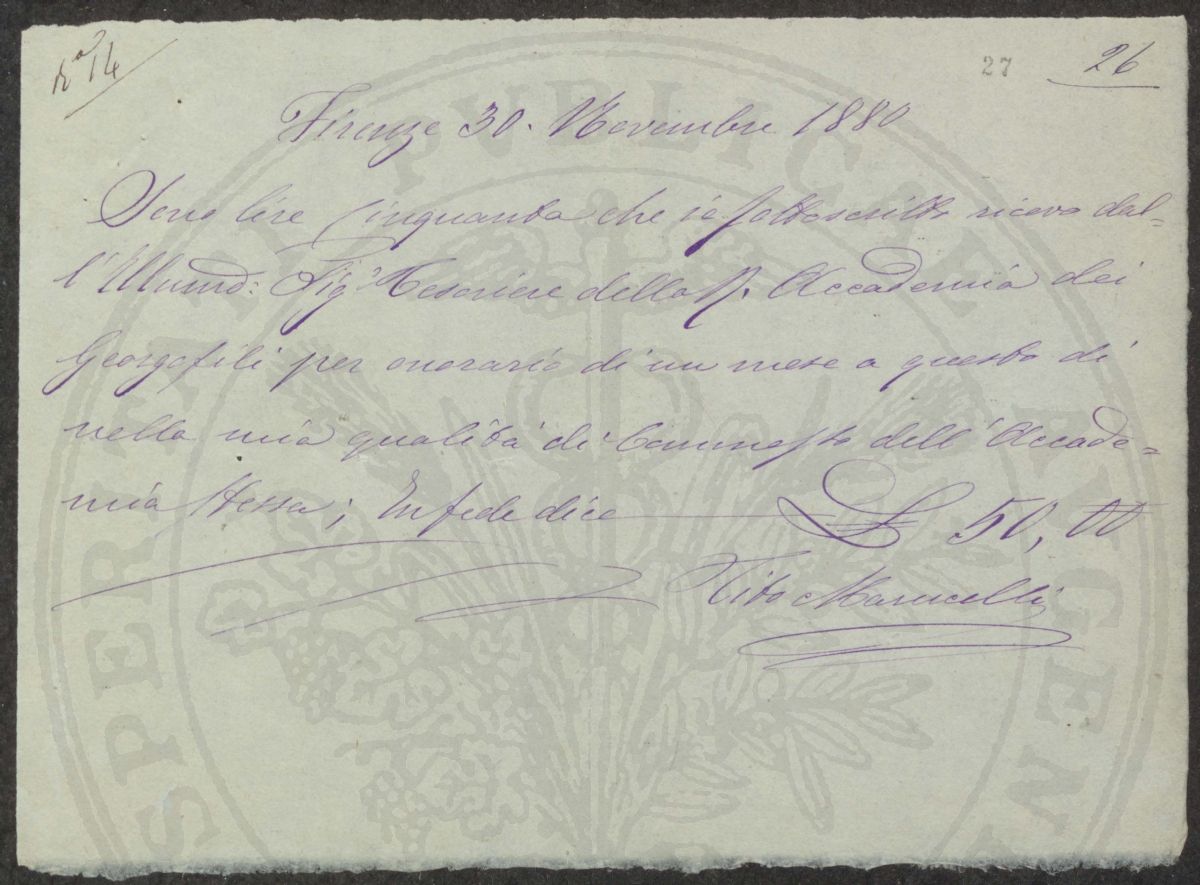 N° 14
27
26
Firenze 30. Novembre 1880
Sono lire Cinquanta che io sottoscritto ricevo dal=
l'Illumo: Sigr Tesoriere della R. Accademia dei
Georgofili per onorario di un mese a questo dì
nella mia qualità di Commesso dell'Accade=
mia stessa; In fede dico £ 50,00
Tito Marucelli
PVBLICAE
SPERITATI
AVGEN